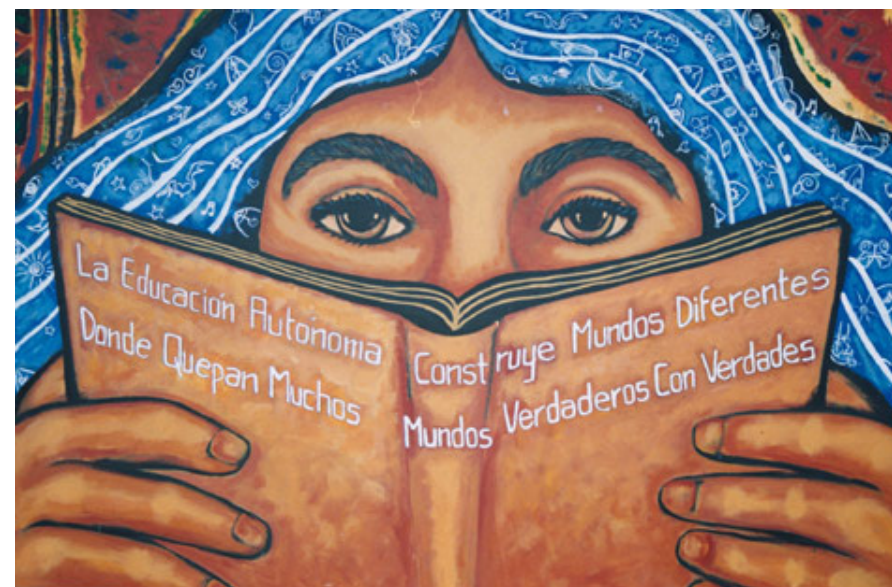 La Educación Autónoma Construye Mundos Diferentes
Donde Quepan Muchos Mundos Verdaderos Con Verdades